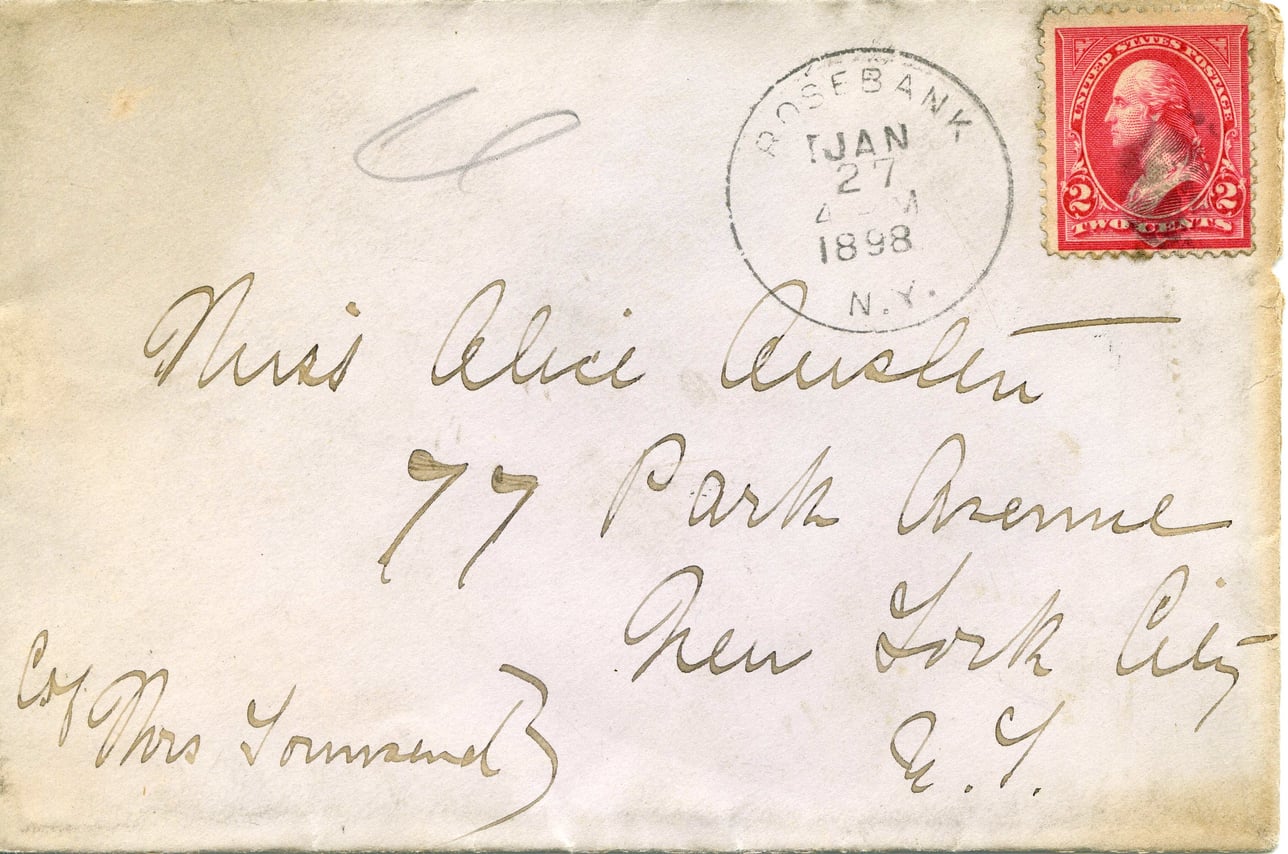 UNITED STATES POSTAGE
2 2
TWO CENTS
ROSEBANK
JAN
27
4 M
1898
N.Y.
Miss Alice Austen
77 Park Avenue
New York City
N.Y.
C/o
Mrs Townsend